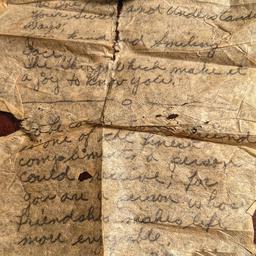 To one
Your sweet and understanding
ways, and smiling
face
The things which make it
a joy to know you.
To be a friend
one of the finest
compliments a person
could receive, for
you are a person whose
friendship makes life
more enjoyable.